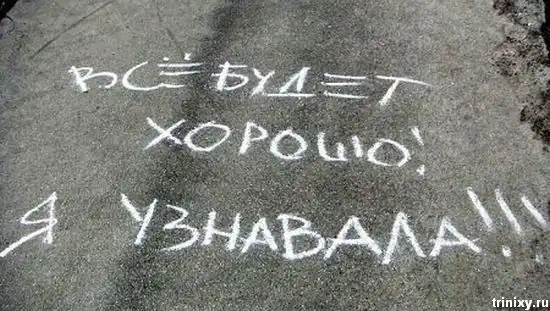 ВСЁ БУДЕТ
ХОРОШО!
Я УЗНАВАЛА!!!
trinixy.ru